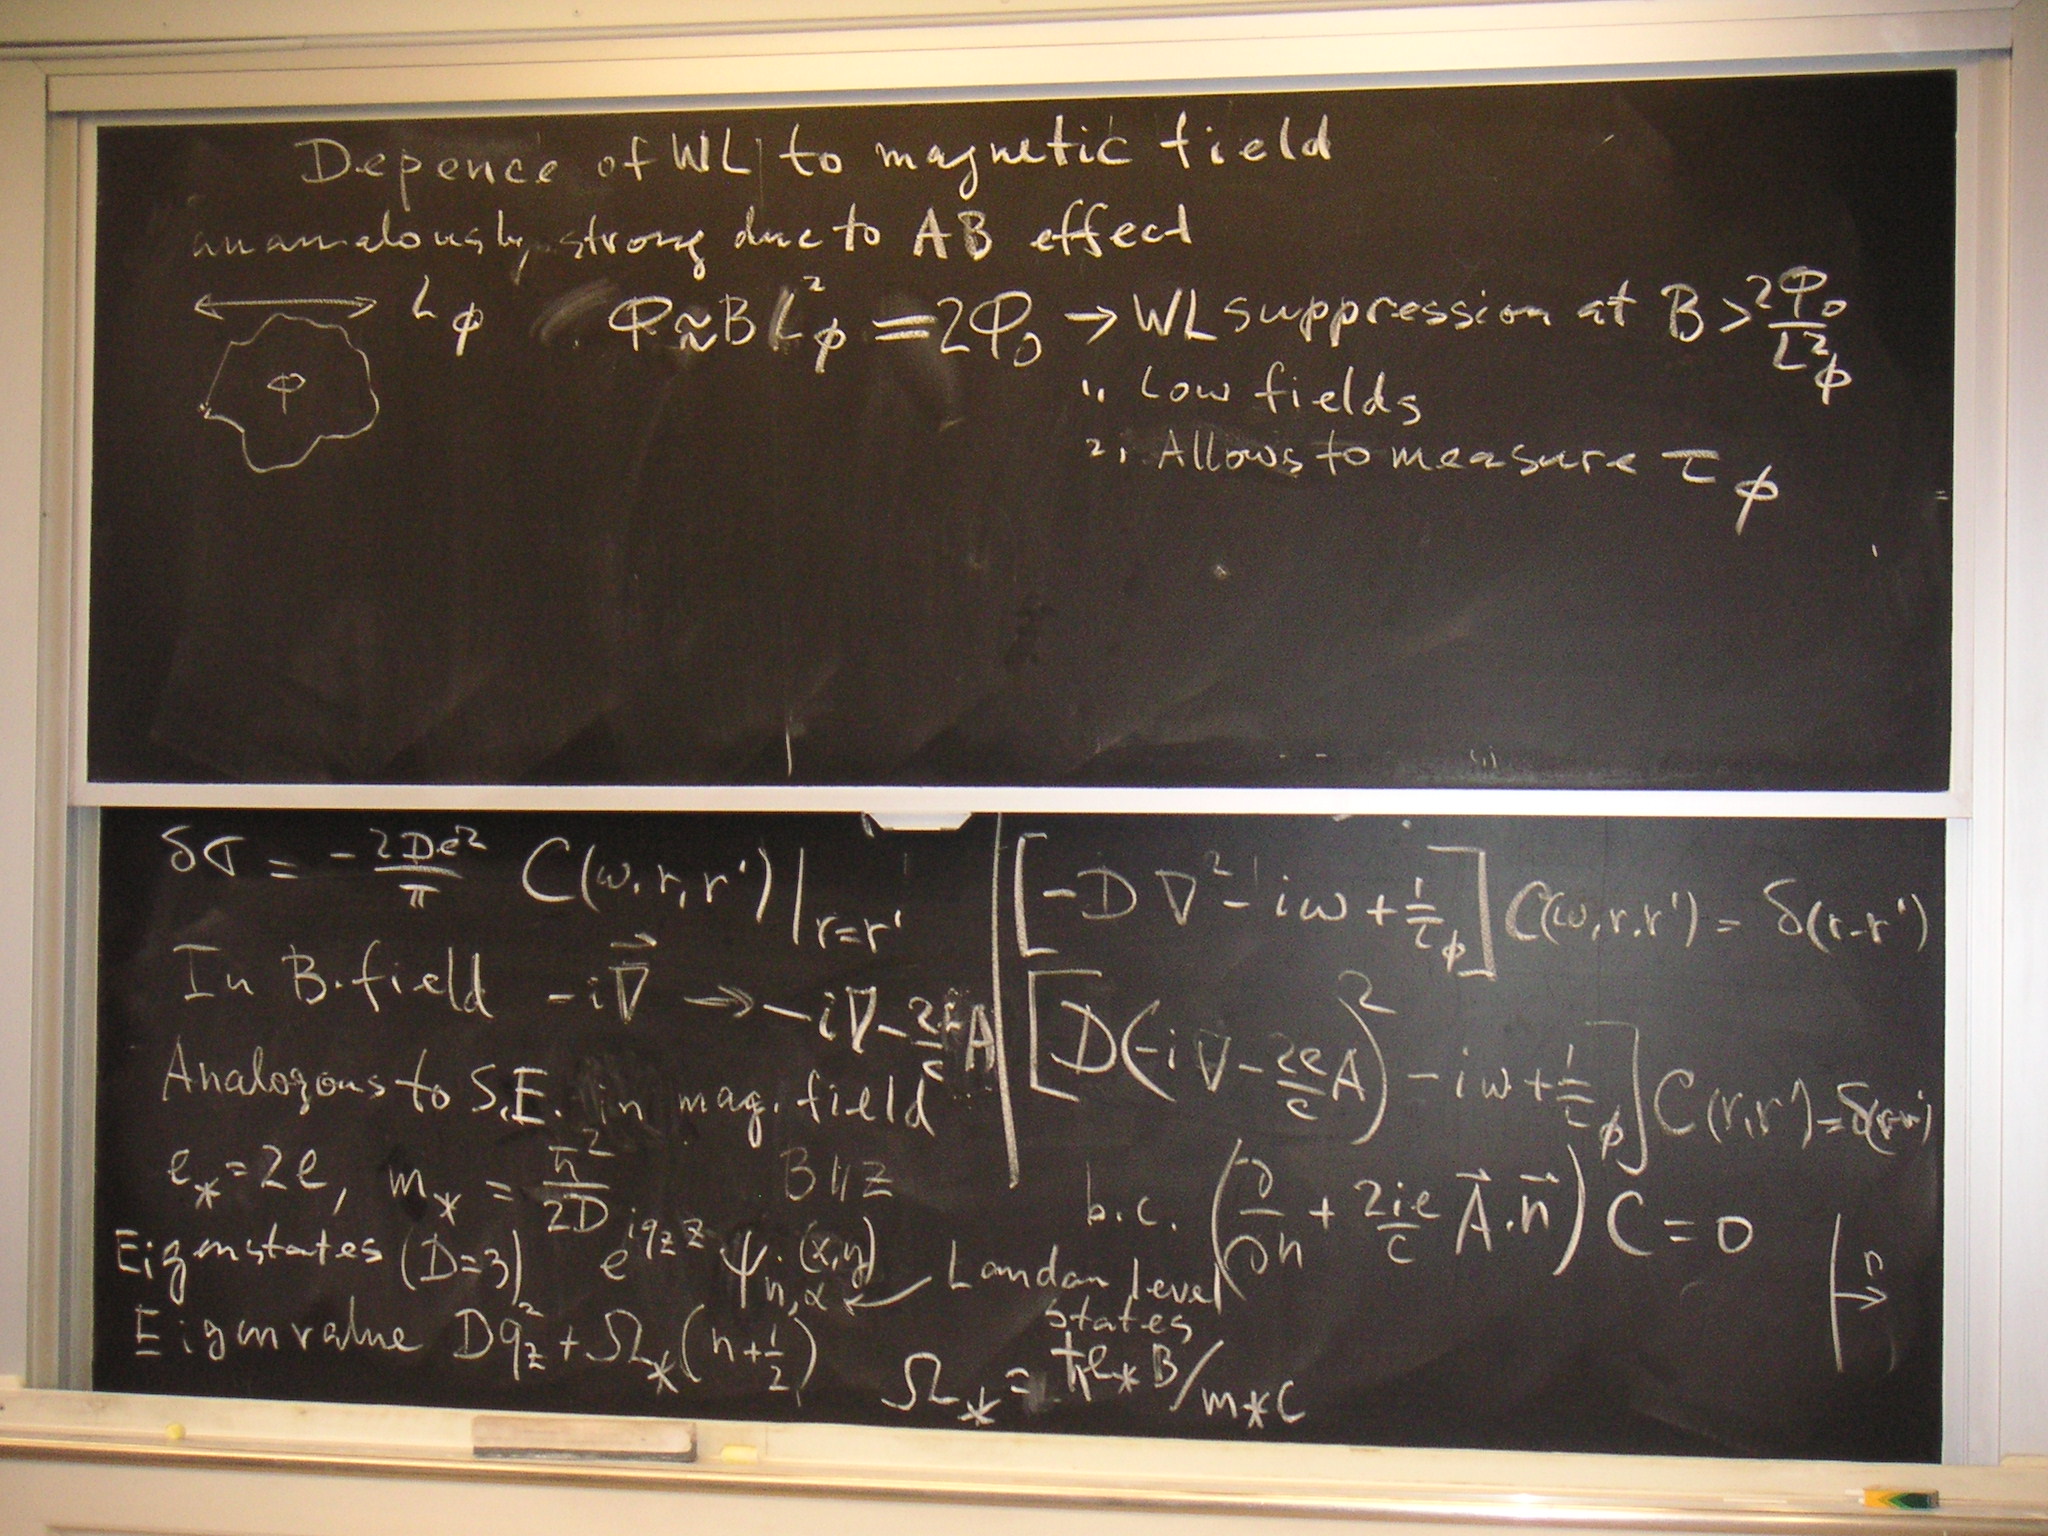 Depence of WL to magnetic field
anamalously strong due to AB effect
L_φ Φ ≈ B L_φ^2 = 2Φ_0 → WL suppression at B > 2Φ_0 / L_φ^2
Φ
1. Low fields
2. Allows to measure τ_φ
δσ = - 2De^2/π C(ω, r, r')|_{r=r'}
In B-field -i∇⃗ → -i∇ - 2e/c A
Analogous to S.E. in mag. field
e_* = 2e, m_* = ħ^2/2D B || z
Eigenstates (D=3) e^{iq_z z} ψ_{n,α}(x,y) ← Landau level states
Eigenvalue Dq_z^2 + Ω_* (n + 1/2) Ω_* = ħe_*B/m_*c
[-D∇^2 - iω + 1/τ_φ] C(ω, r, r') = δ(r-r')
[D(-i∇ - 2e/c A)^2 - iω + 1/τ_φ] C(r, r') = δ(r-r')
b.c. (∂/∂n + 2ie/c A⃗·n⃗) C = 0
n